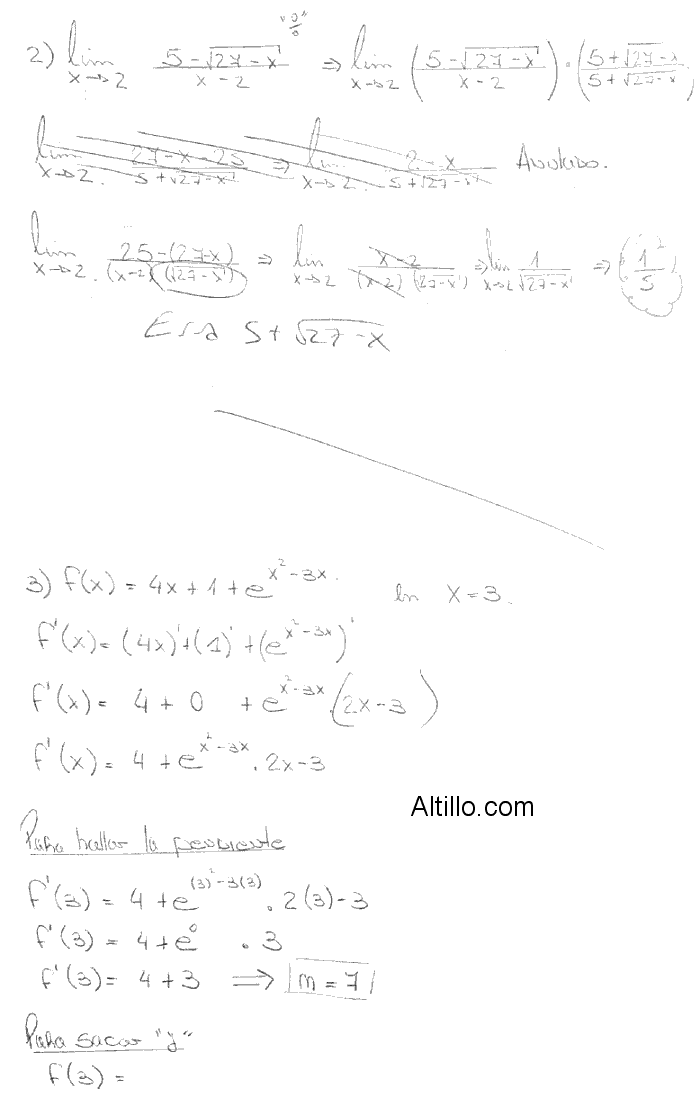 "0/0"
2) lim x→2 (5-√(27-x))/(x-2) ⇒ lim x→2 ((5-√(27-x))/(x-2)) · ((5+√(27-x))/(5+√(27-x)))
lim x→2. (27-x-25)/(5+√(27-x)) ⇒ lim x→2. (2-x)/(5+√(27-x)) Anulado.
lim x→2. (25-(27-x))/((x-2)(√(27-x))) ⇒ lim x→2 (x-2)/((x-2)(√(27-x))) ⇒ lim x→2 1/√(27-x) ⇒ 1/5
Era 5+√(27-x)
3) f(x) = 4x+1+e^(x²-3x). en x=3.
f'(x) = (4x)'+(1)'+(e^(x²-3x))'
f'(x) = 4+0 +e^(x²-3x).(2x-3)
f'(x) = 4+e^(x²-3x).2x-3
Altillo.com
Para hallar la pendiente
f'(3) = 4+e^((3)²-3(3)) . 2(3)-3
f'(3) = 4+e⁰ . 3
f'(3) = 4+3 ⇒ m=7
Para sacar "y"
f(3) =